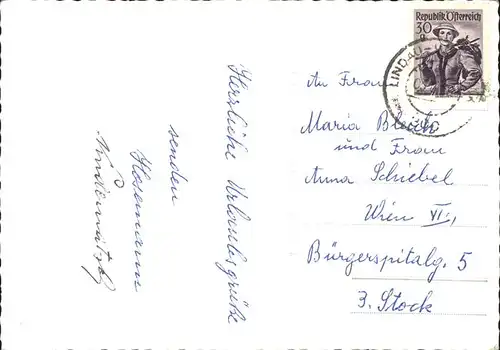 Herzliche Urlaubsgrüße
senden
Republik Österreich
30 g
LINDAU
An Frau
Maria
und Frau
Anna Schiebel
Wien VI.,
Bürgerspitalg. 5
3. Stock